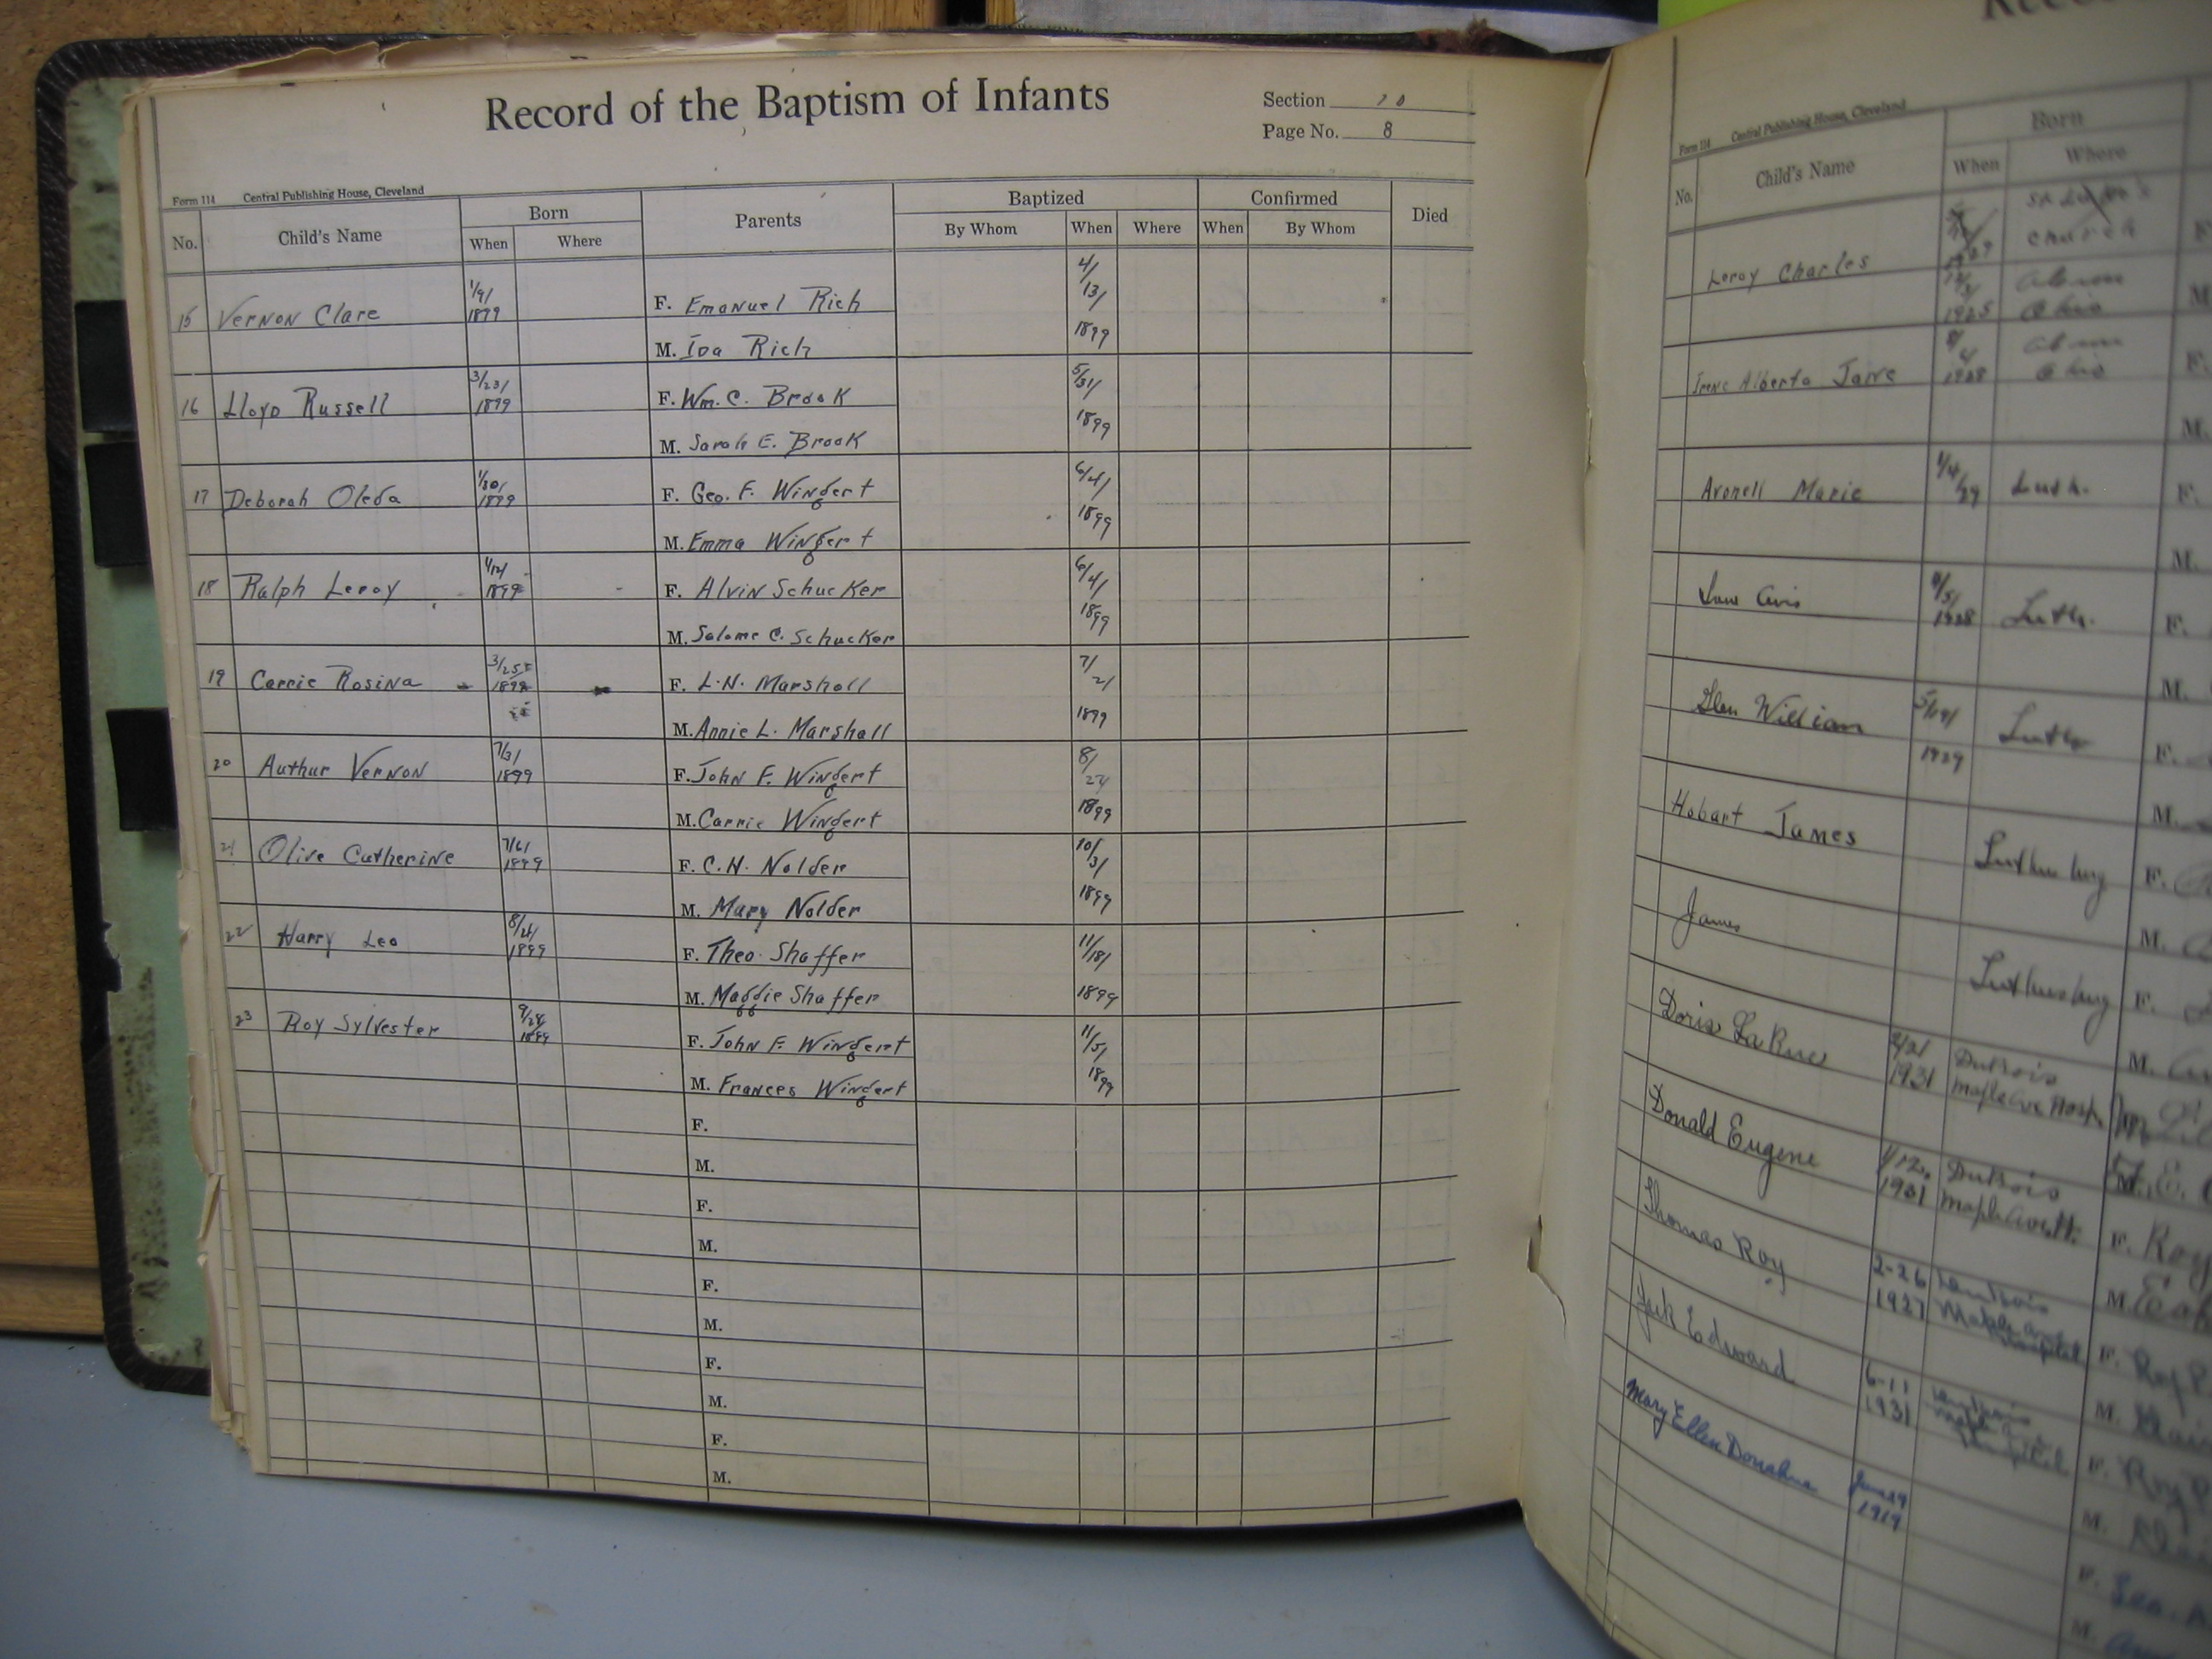 Record of the Baptism of Infants
Section 10
Page No. 8
Form 114 Central Publishing House, Cleveland
No. Child's Name Born When Where Parents Baptized By Whom When Where Confirmed When By Whom Died
15 Vernon Clare 1/9/1899 F. Emanuel Rich 4/13/1899
M. Ida Rich
16 Lloyd Russell 3/23/1899 F. Wm. C. Brook 5/31/1899
M. Sarah E. Brook
17 Deborah Oleda 1/30/1899 F. Geo. F. Wingert 6/4/1899
M. Emma Wingert
18 Ralph Leroy 1/12/1899 F. Alvin Schucker 6/4/1899
M. Salome C. Schucker
19 Carrie Rosina 3/25 1899 F. L.N. Marshall 7/21 1899
M. Annie L. Marshall
20 Authur Vernon 7/3/1899 F. John F. Wingert 8/27/1899
M. Carrie Wingert
21 Olive Catherine 7/6/1899 F. C.H. Nolder 10/31 1899
M. Mary Nolder
22 Harry Leo 8/26/1899 F. Theo. Shaffer 11/18/1899
M. Maggie Shaffer
23 Roy Sylvester 9/28/1899 F. John F. Wingert 11/5/1899
M. Frances Wingert
F.
M.
F.
M.
F.
M.
F.
M.
F.
M.
Form 114 Central Publishing House, Cleveland
No. Child's Name Born When Where
Leroy Charles Church 1925 Ohio
Irene Alberta 1928 Ohio
F.
M.
Avonell Marie 1/4/29 Luth. F.
M.
1928 Luth. F.
M.
Glen William 5/19/1929 F.
M.
Hobart James F.
M.
James F.
M.
Doris LaRue 1931 DuBois Maple Ave Hosp.
Donald Eugene 1/12 1931 DuBois
F. Roy
M.
Thomas Roy 2-26 1927
F.
M.
Jack Edward 6-11 1931
F. Roy
M.
Mary Ellen Donahue June 19 1919
F.
M.